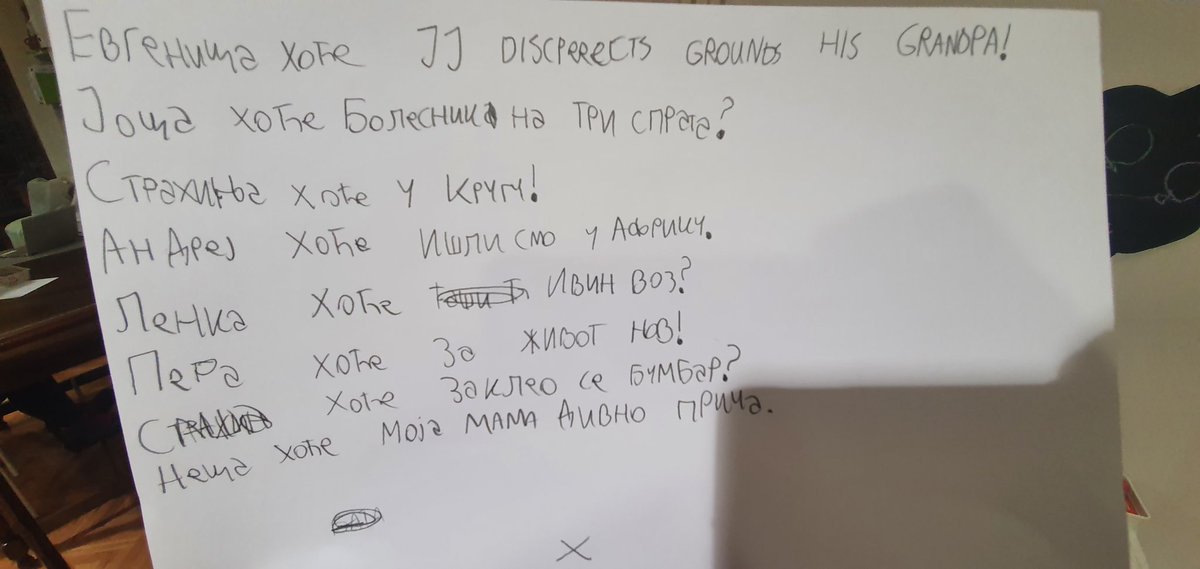 Евгенища хоће JJ DISCPERECTS GROUNDS HIS GRANDPA!
Јоща хоће Болесник на три спрата?
Страхиња хоће у Кругу!
Андреј хоће Ишли смо у Африку.
Ленка хоће Ивин воз?
Пера хоће За живот нов!
хоће Заклео се бумбар?
Неща хоће Моја мама дивно прича.
X